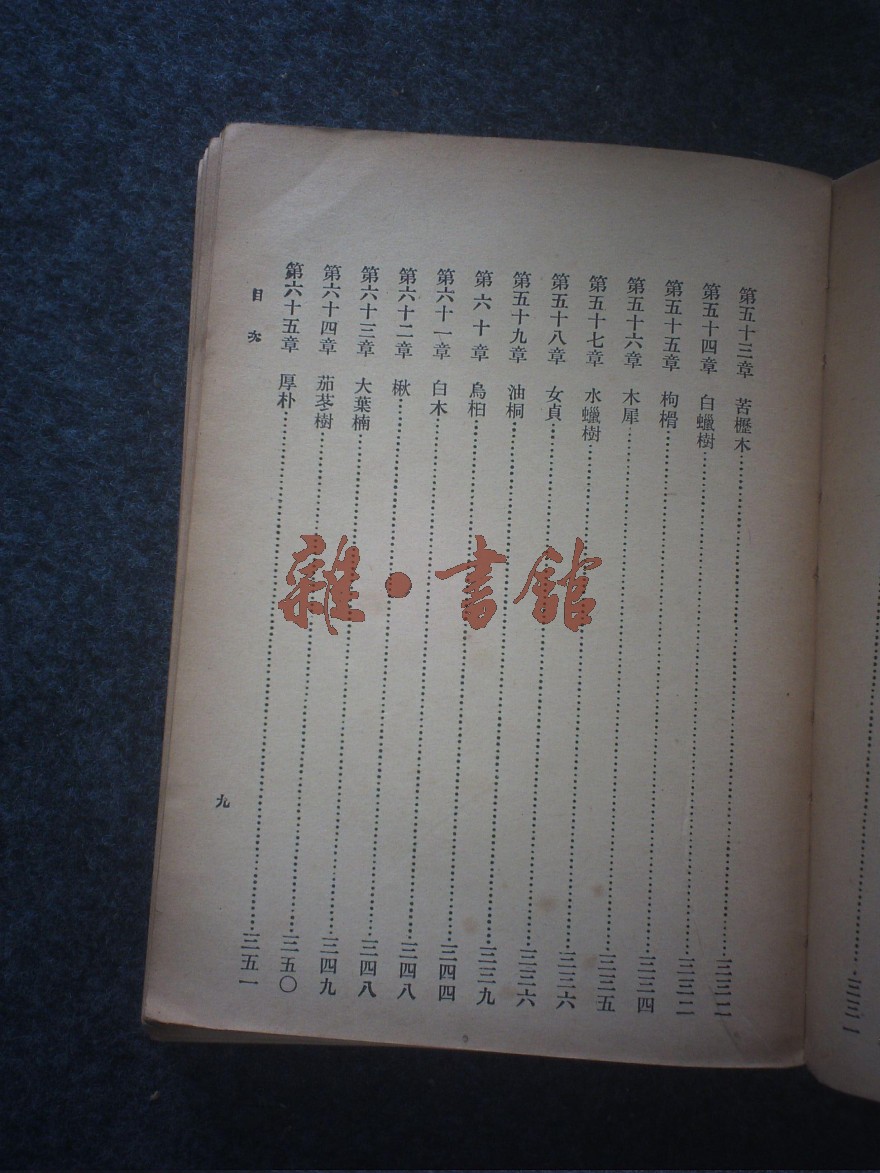 三三一
第五十三章 苦櫪木……三三二
第五十四章 白蠟樹……三三二
第五十五章 枸榾……三三四
第五十六章 木犀……三三五
第五十七章 水蠟樹……三三六
第五十八章 女貞……三三六
第五十九章 油桐……三三九
第六十章 烏桕……三四四
第六十一章 白木……三四八
第六十二章 楸……三四八
第六十三章 大葉楠……三四九
第六十四章 茄苳樹……三五〇
第六十五章 厚朴……三五一
目次
九
雜·書館